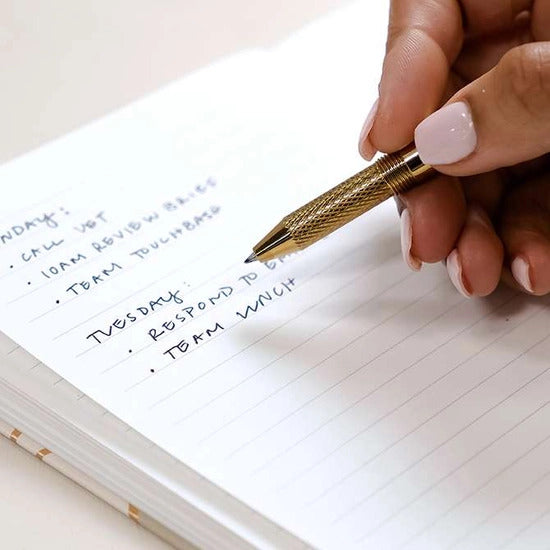 NDAY:
• CALL VET
• 10AM REVIEW BRIEFS
• TEAM TOUCHBASE
TUESDAY:
• RESPOND TO
• TEAM LUNCH